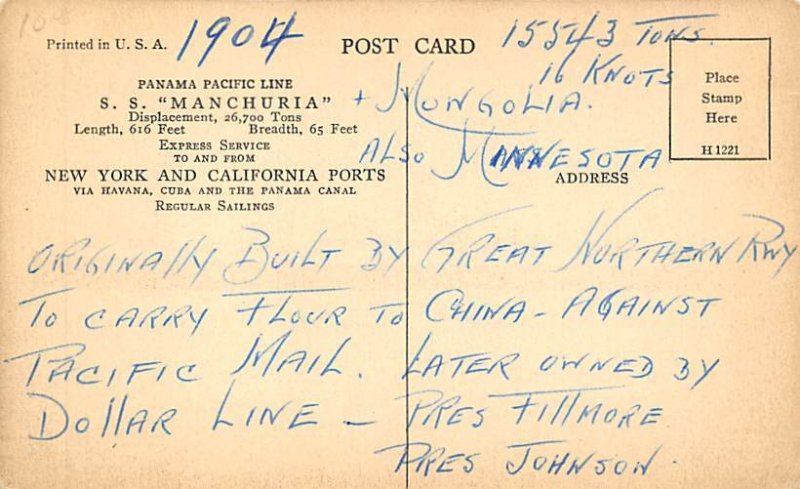 Printed in U. S. A.
1904
POST CARD
15543 TONS.
16 KNOTS
PANAMA PACIFIC LINE
S. S. "MANCHURIA"
Displacement, 26,700 Tons
Length, 616 Feet Breadth, 65 Feet
EXPRESS SERVICE
TO AND FROM
NEW YORK AND CALIFORNIA PORTS
VIA HAVANA, CUBA AND THE PANAMA CANAL
REGULAR SAILINGS
+ MONGOLIA.
ALSO MINNESOTA
Place
Stamp
Here
H 1221
ADDRESS
ORIGINALLY BUILT BY GREAT NORTHERN RWY
TO CARRY FLOUR TO CHINA - AGAINST
PACIFIC MAIL. LATER OWNED BY
DOLLAR LINE - PRES FILLMORE
PRES JOHNSON.